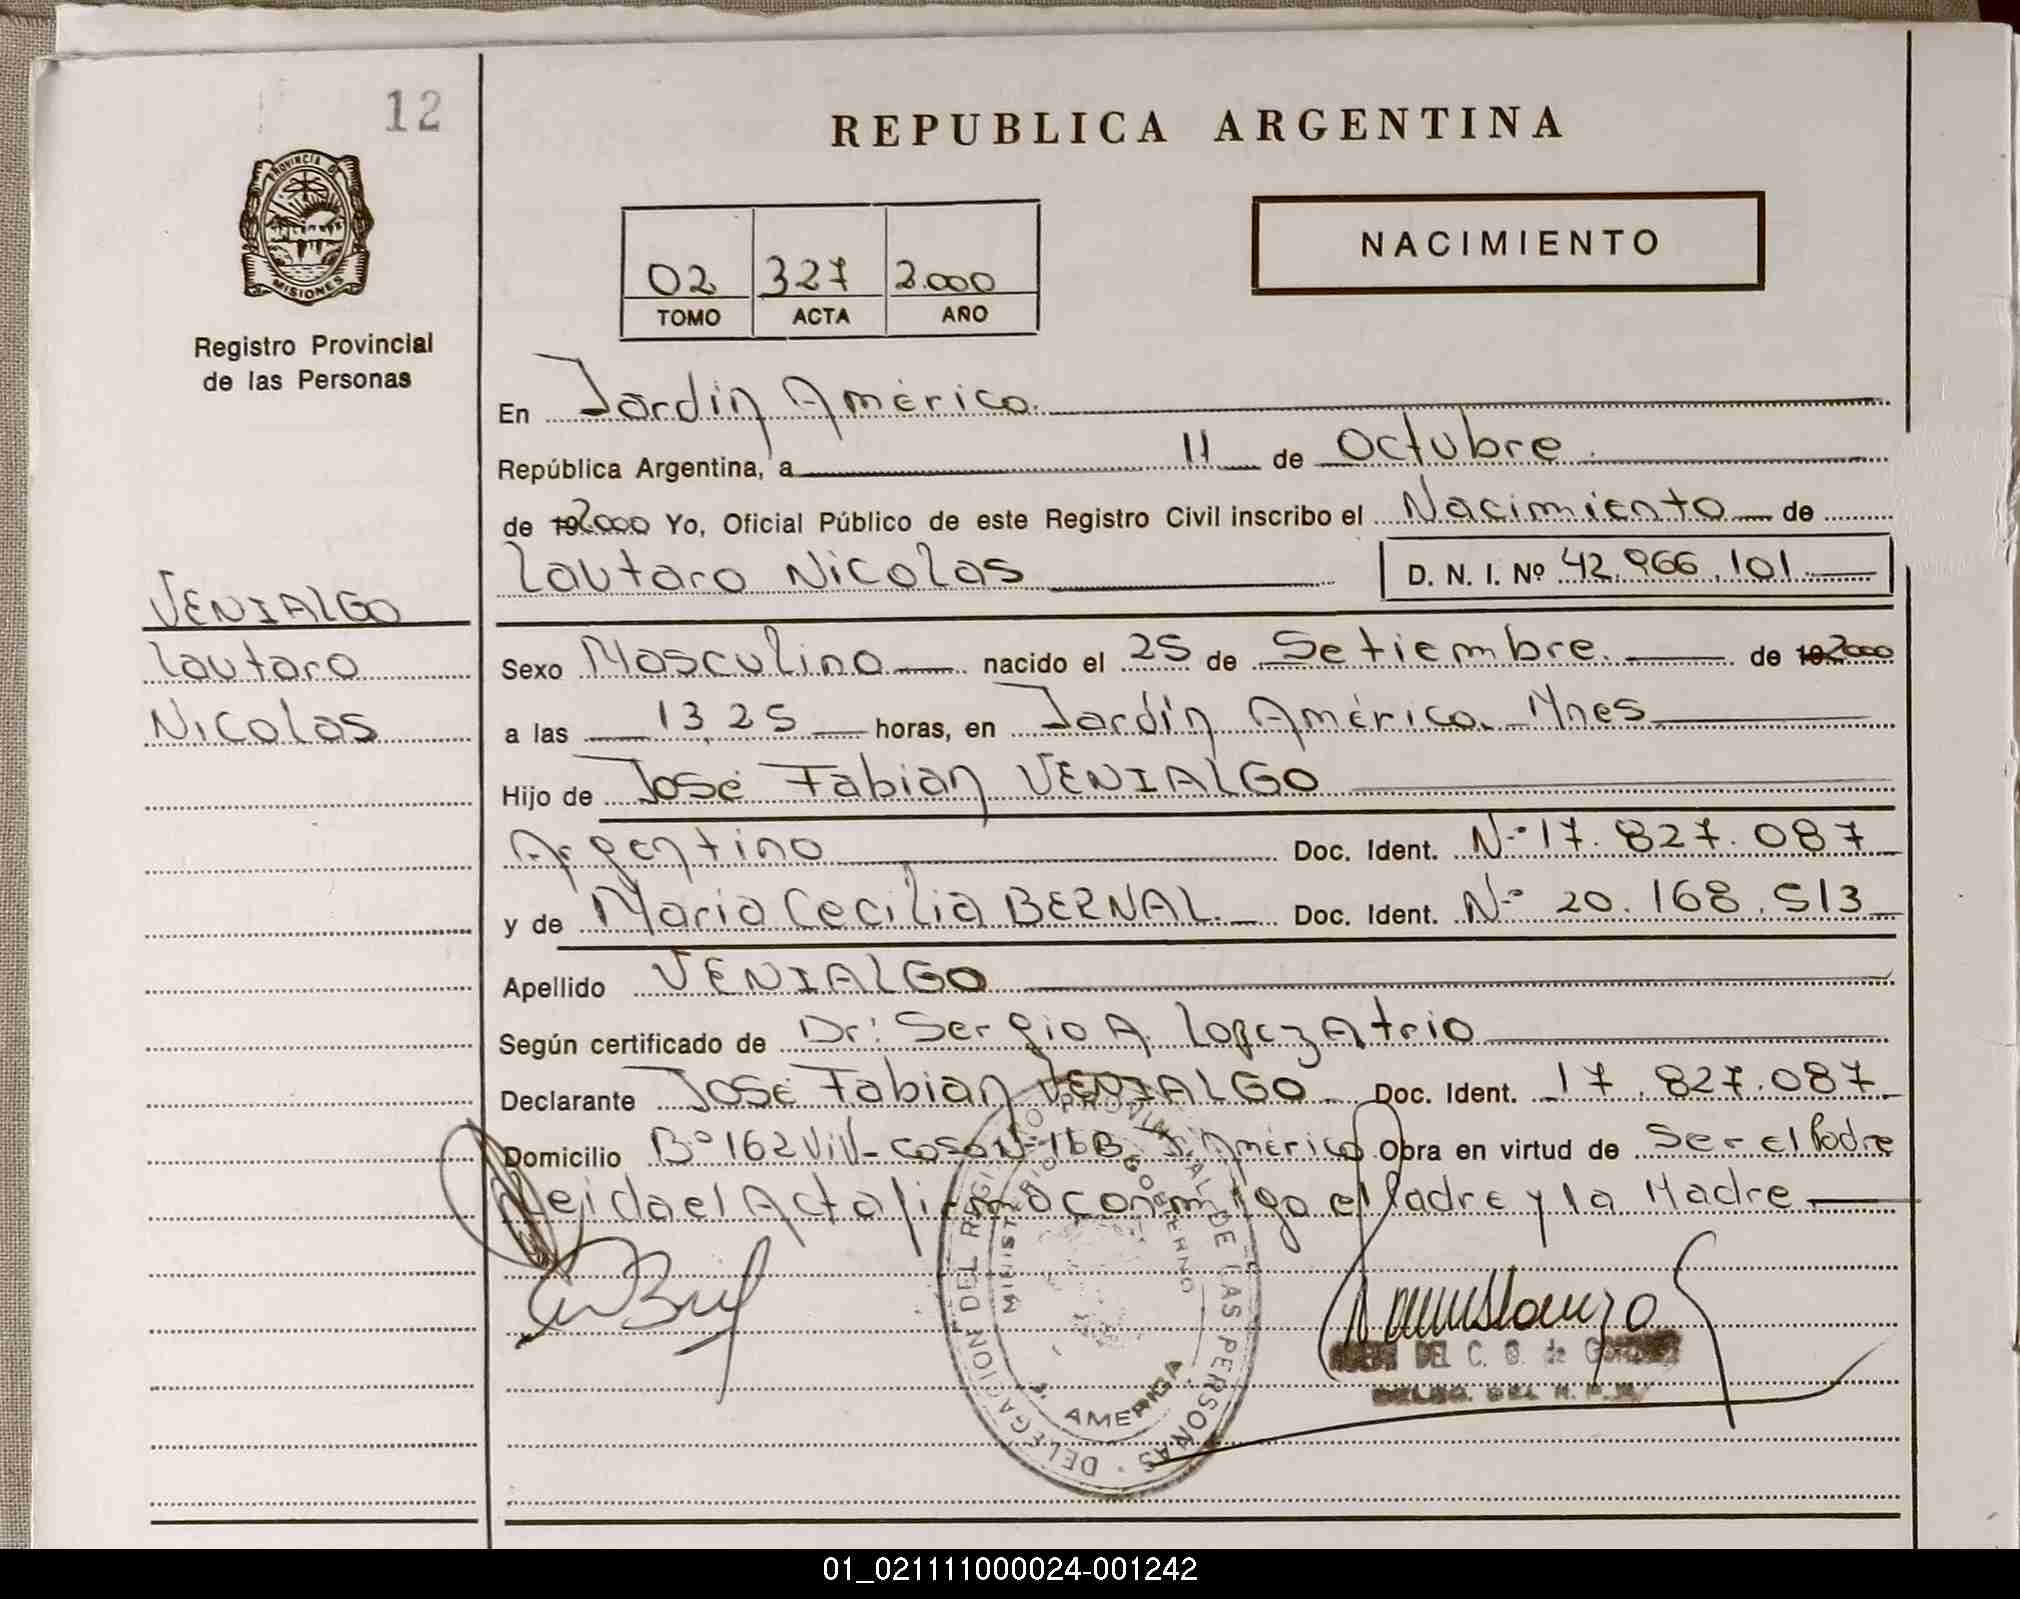 12
REPUBLICA ARGENTINA
PROVINCIA DE
MISIONES
Registro Provincial
de las Personas
02 327 2.000
TOMO ACTA AÑO
NACIMIENTO
En Jardín América.
República Argentina, a 11 de Octubre.
de 192.000 Yo, Oficial Público de este Registro Civil inscribo el Nacimiento de
Lautaro Nicolas D. N. I. Nº 42.966.101
VENIALGO
Lautaro
Nicolas
Sexo Masculino nacido el 25 de Setiembre. de 192000
a las 13,25 horas, en Jardín América. Mnes
Hijo de José Fabian VENIALGO
Argentino Doc. Ident. Nº 17.827.087
y de Maria Cecilia BERNAL. Doc. Ident. Nº 20.168.513
Apellido VENIALGO
Según certificado de Dr: Sergio A. Lopez Atrio
Declarante José Fabian VENIALGO Doc. Ident. 17.827.087
Domicilio Bº 162 Viv- casa Nº 16B J. América Obra en virtud de Ser el Padre
Leida el Acta firmo conmigo el Padre y la Madre
DELEGACION DEL REGISTRO PROVINCIAL DE LAS PERSONAS
MINISTERIO GOBIERNO
J. AMERICA
DEL C. S. de
DELEG. DEL R. P.
01_021111000024-001242